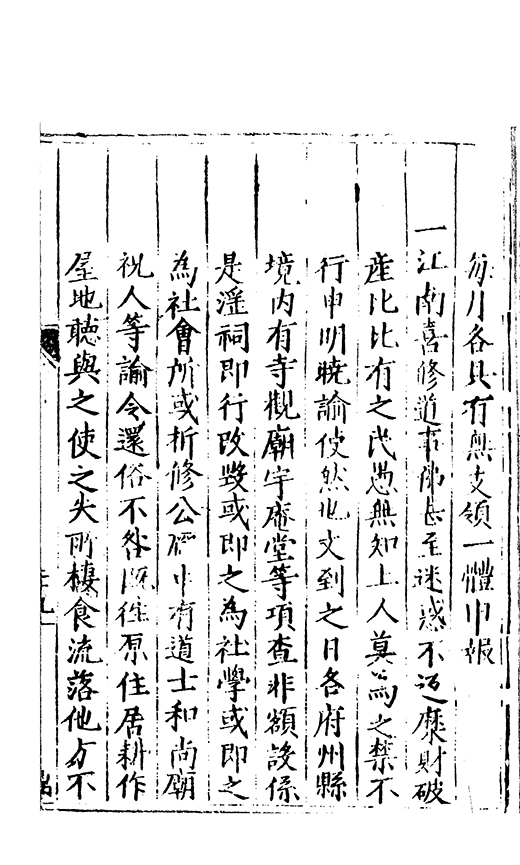 每月各具有無支領一體申報
一江南喜修道事佛甚至迷惑不返糜財破
產比比有之民愚無知上人莫為之禁不
行申明曉諭使然也文到之日各府州縣
境內有寺觀廟宇庵堂等項查非額設係
是淫祠即行改毀或即之為社學或即之
為社會所或折修公廨中有道士和尚廟
祝人等諭令還俗不咎既往原住居耕作
屋地聽與之使之失所棲食流落他方不